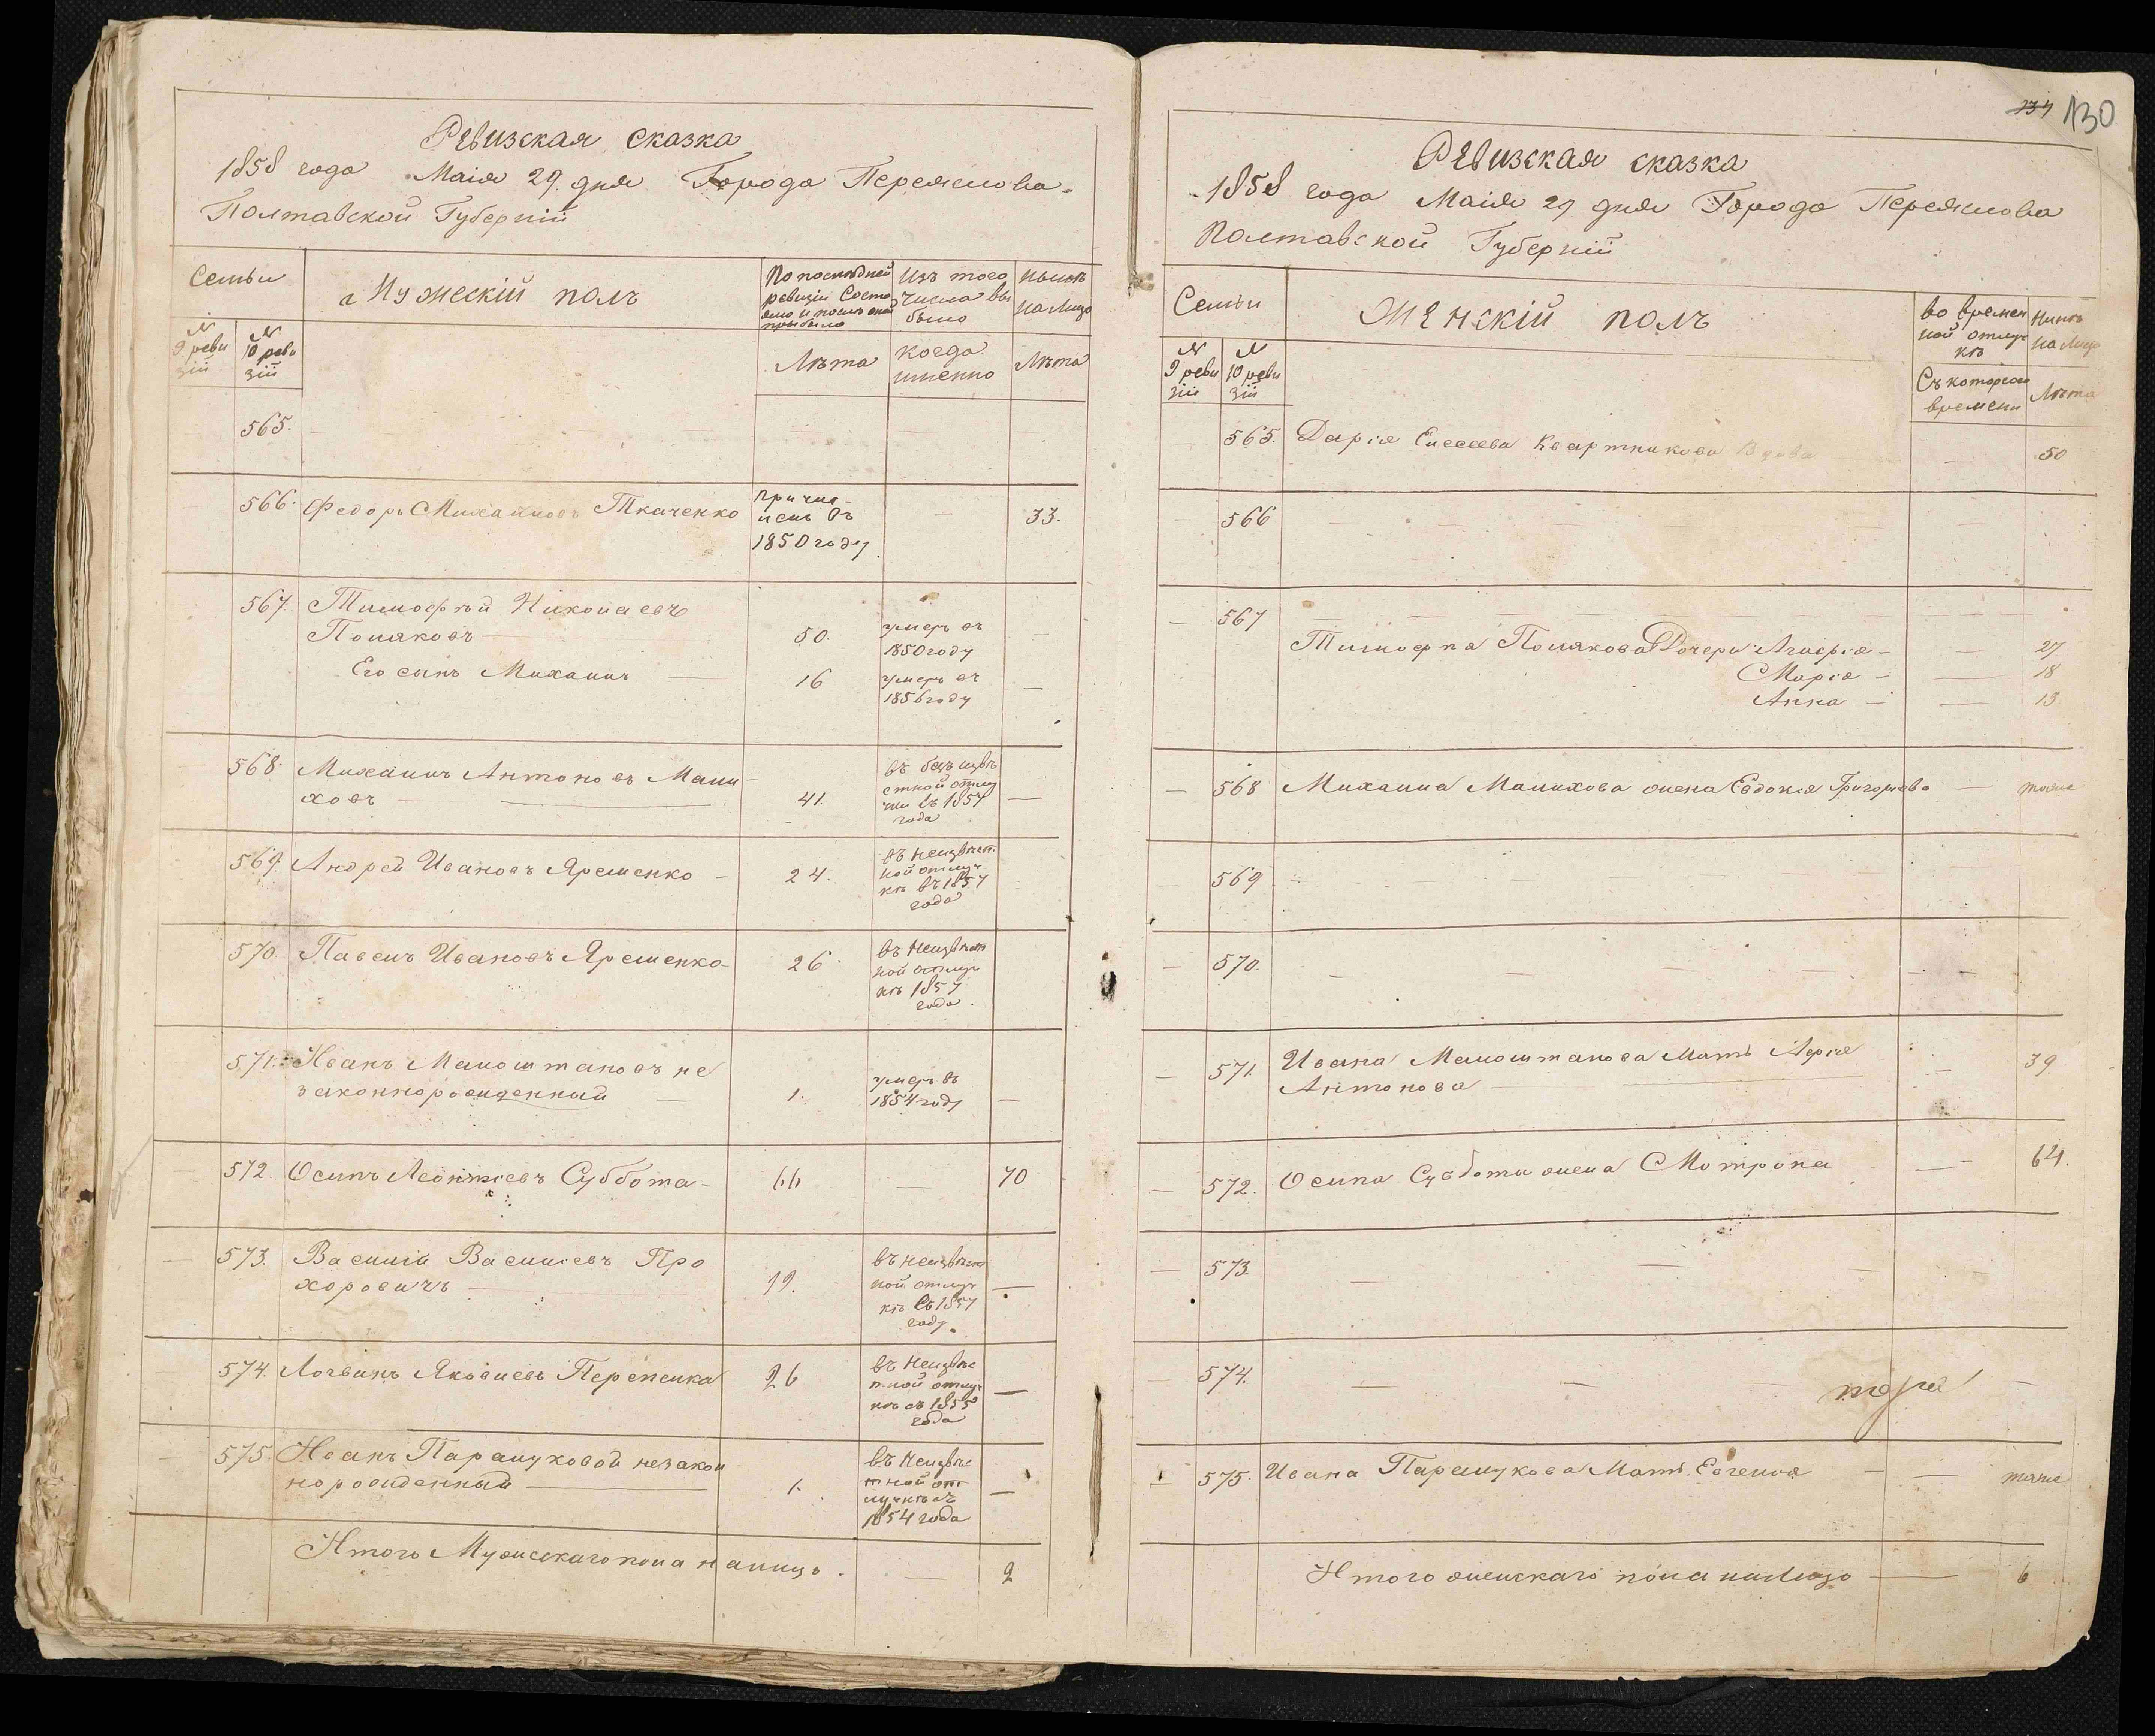 Ревизская сказка
1858 года Маія 29 дня Города Переяслова
Полтавской Губерніи
Семьи
Мужескій полъ
По последней
ревизіи Состо
яло и после оной
прибыло
Изъ того
числа вы
было
Ныне
на Лицо
№
9 реви
зіи
№
10 реви
зіи
Лѣта
когда
именно
Лѣта
565.
566. Федоръ Михайловъ Ткаченко
причис-
ленъ въ
1850 году
33.
567. Тимофѣй Николаевъ
Поляковъ
50.
умеръ въ
1850 году
Его сынъ Михаилъ
16
умеръ въ
1856 году
568. Михаилъ Антоновъ Мали
ховъ
41.
въ безъизвѣ
стной отлу
чки съ 1857
года
569. Андрей Ивановъ Яременко
24.
въ неизвѣст
ной отлуч
кѣ въ 1857
года
570. Павелъ Ивановъ Яременко
26
въ Неизвѣст
ной отлуч
кѣ 1857
года
571. Иванъ Малоштановъ не
законнорожденный
1.
умеръ въ
1854 году
572. Осипъ Леонтіевъ Суббота
66
70
573. Василій Василіевъ Про
хоровичъ
19.
въ неизвѣст
ной отлуч
кѣ съ 1857
году
574. Логвинъ Яковлевъ Перепелка
26
въ Неизвѣс
тной отлуч
кѣ съ 1855
года
575. Иванъ Паралуховой незакон
норожденный
1.
въ Неизвѣс
тной от
лучкѣ съ
1854 года
Итого Мужескаго пола налицо
2
130
Ревизская сказка
1858 года Маія 29 дня Города Переяслова
Полтавской Губерніи
Семьи
Женскій полъ
во времен
ной отлуч
кѣ
Нинѣ
на Лицо
№
9 реви
зіи
№
10 реви
зіи
Съ котораго
времени
Лѣта
565. Дарія Елесеева Квартникова Вдова
50
566
567
Тимофѣя Полякова Дочери: Агафія
27
Марія
18
Анна
13
568 Михаила Малихова жена Евдокія Григорьева
тоже
569
570.
571. Ивана Малоштанова Мать
Антонова
39
572. Осипа Субботы жена Мотрона
64.
573.
574.
575. Ивана Паралухова Мать Евгенія
тоже
Итого женскаго пола налицо
6